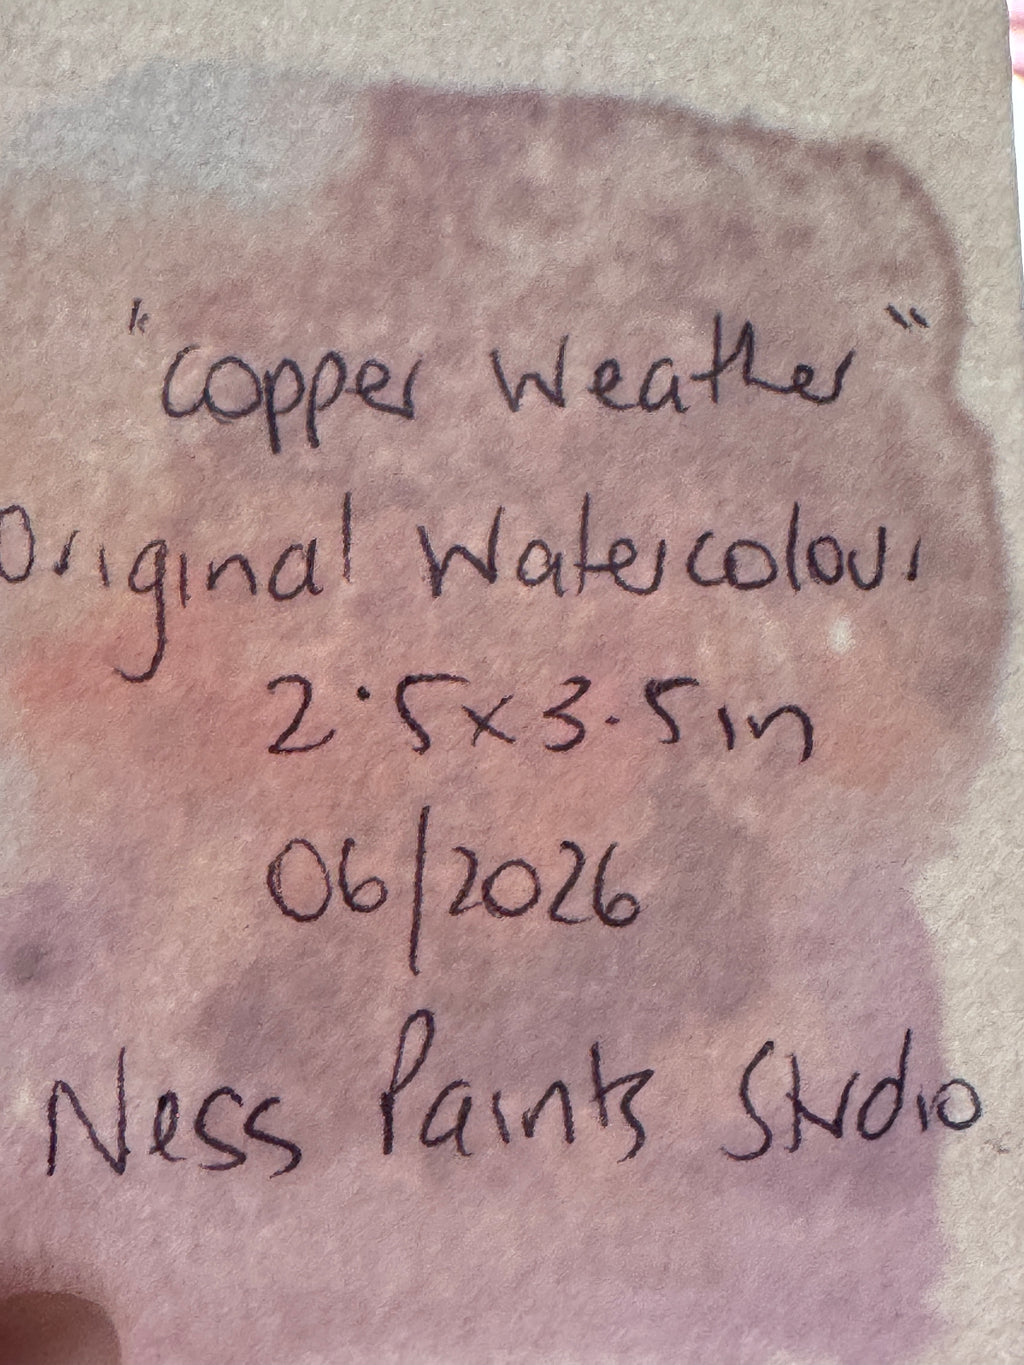 "Copper Weather"
Original Watercolour
2.5x3.5in
06/2026
Ness Paints Studio